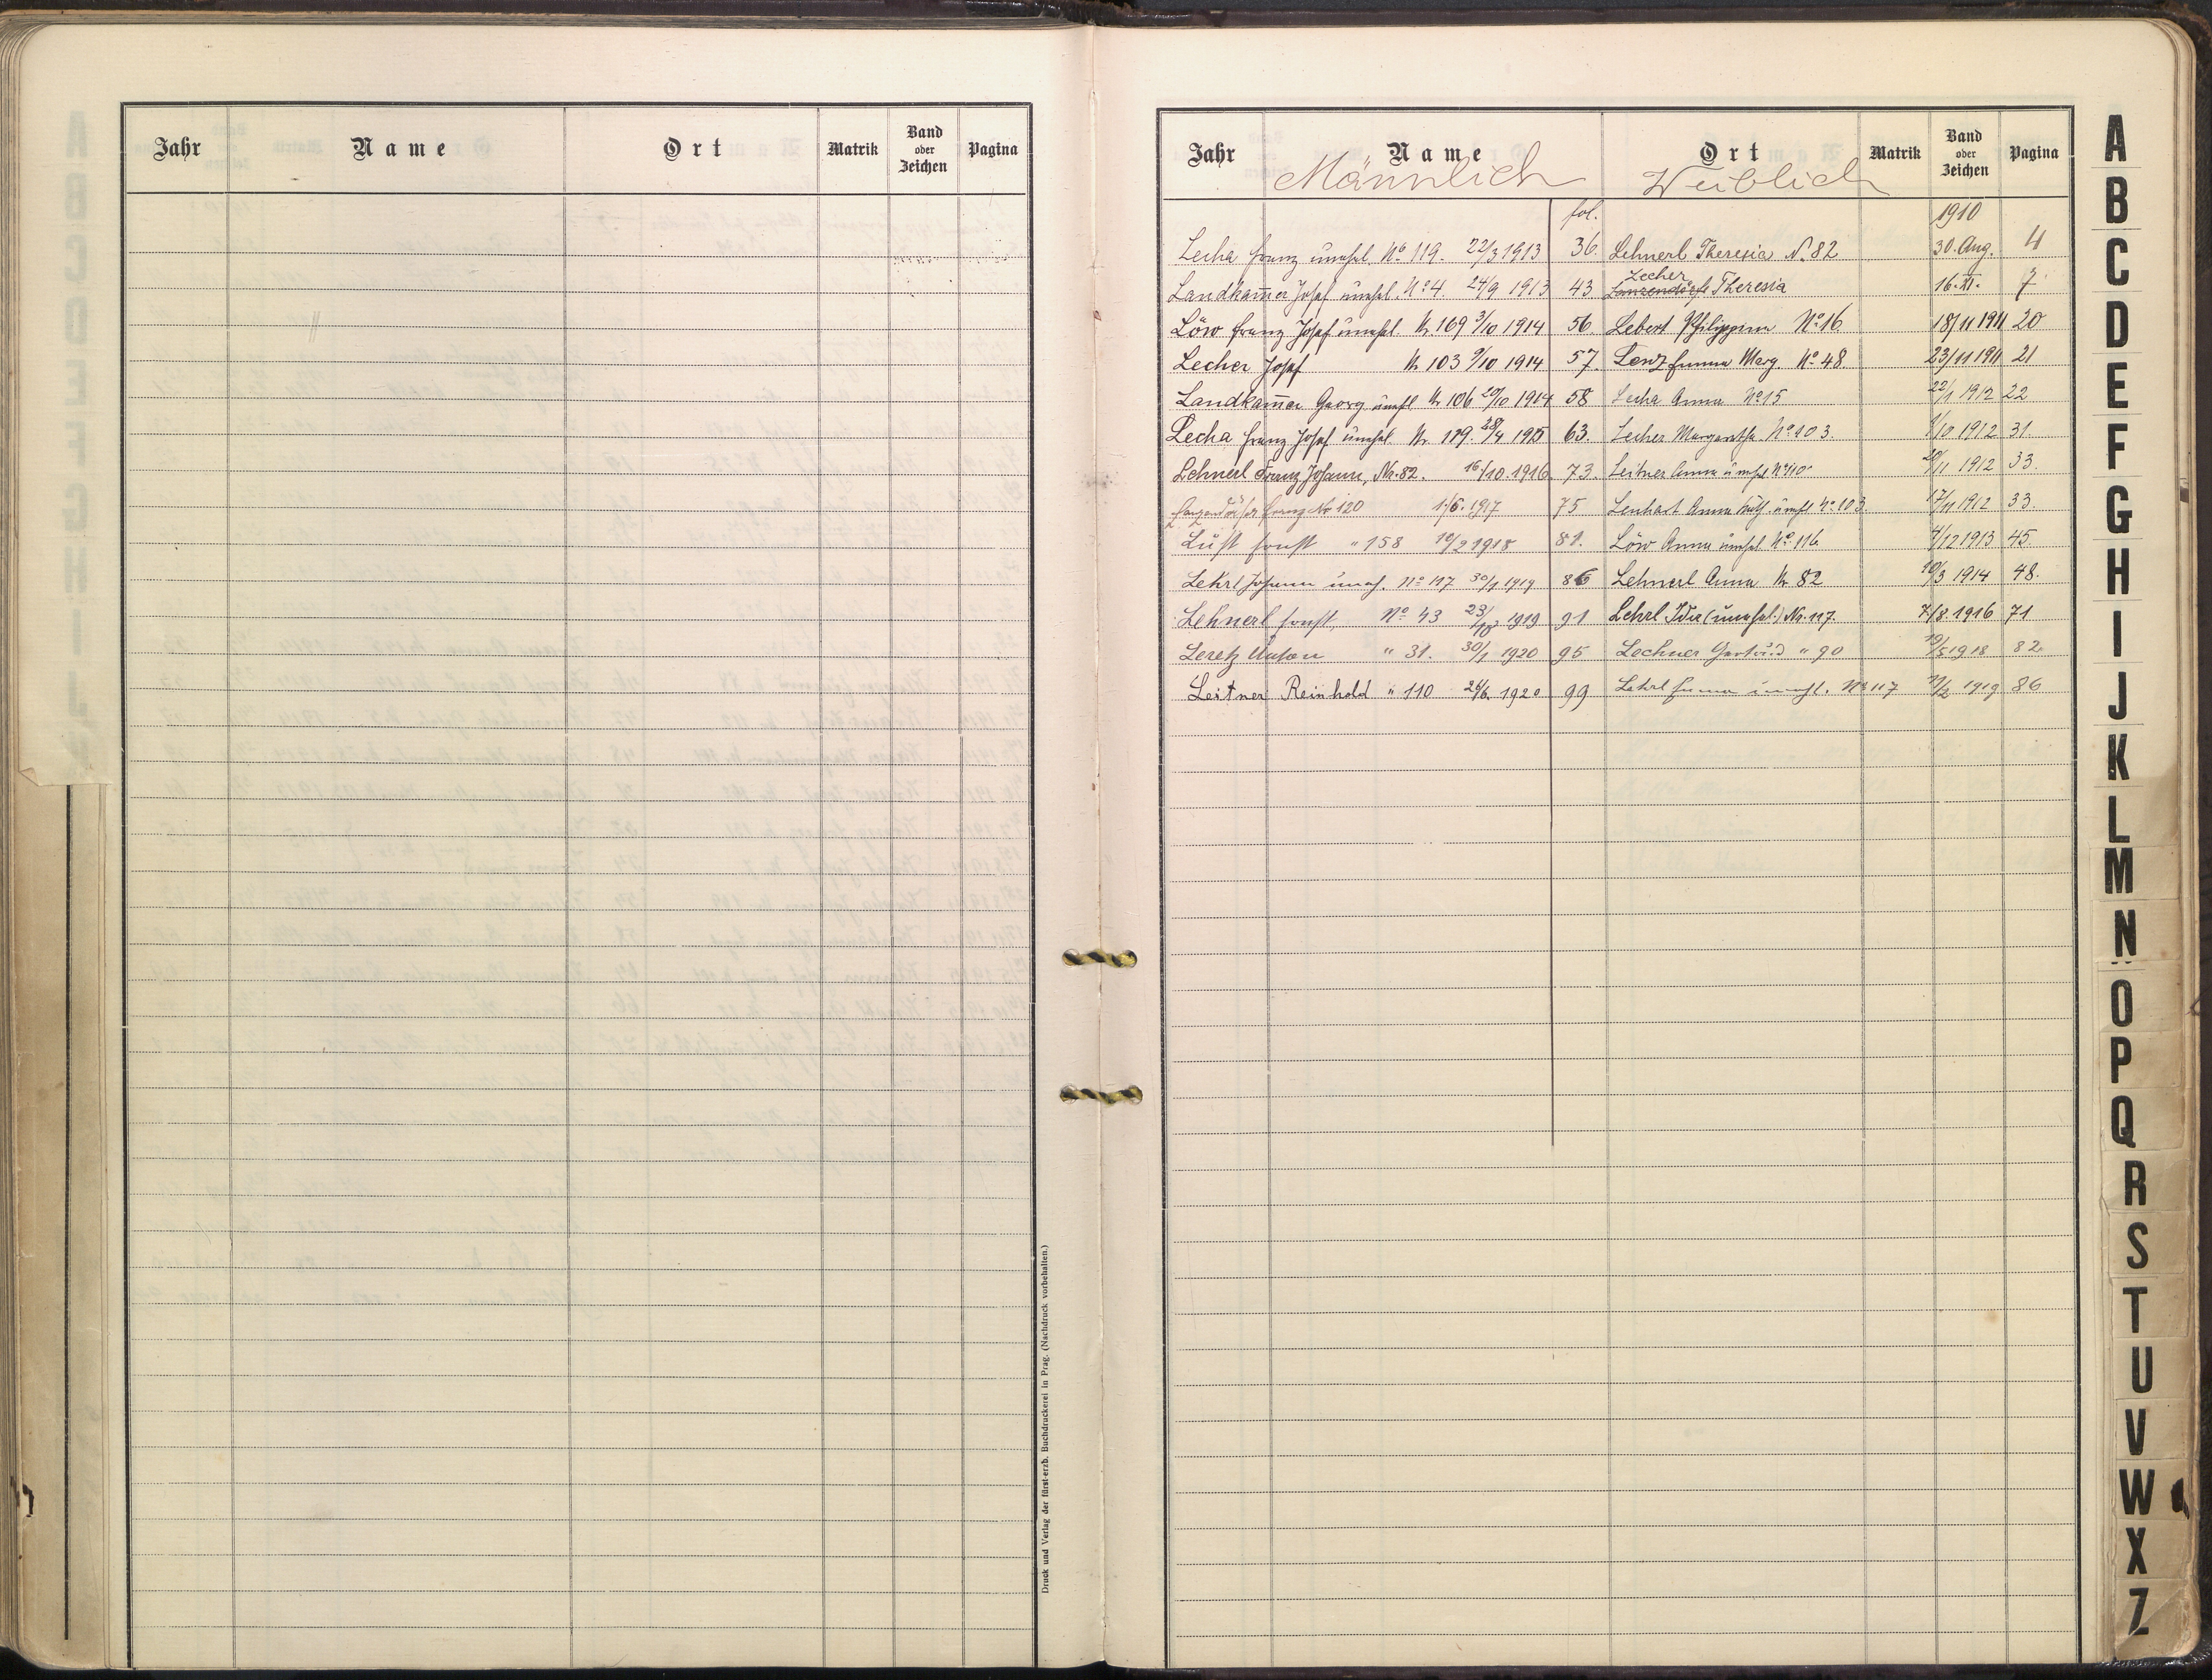 Jahr Name Ort Matrik Band oder Zeichen Pagina
Druck und Verlag der fürst-erzb. Buchdruckerei in Prag. (Nachdruck vorbehalten.)
Jahr Name Ort Matrik Band oder Zeichen Pagina
Männlich Weiblich
fol. 1910
Lecha Franz unehel. No 119. 22/3 1913 36. Lehnerl Theresia N. 82 30. Aug. 4
Landkam̅er Josef unehel. No 4. 24/9 1913 43 Lecher Theresia 16. XI. 7
Löw Franz Josef unehel. Nr. 169 3/10 1914 56. Lebert Philippina No 16. 18/11 1911 20
Lecher Josef Nr. 103 9/10 1914 57. Lenz Emma Marg. No 48 23/11 1911 21
Landkam̅er Georg unehl Nr 106 20/10 1914 58 Lecha Anna No 15 22/1 1912 22
Lecha Franz Josef unehel Nr. 119. 28/4 1915 63. Lecher Margaretha No 103. 1/10 1912 31.
Lehnerl Franz Johann, Nr. 82. 16/10. 1916. 73. Leitner Anna unehel No 110 20/11 1912 33.
Franz No 120 1./6. 1917 75 Lenhart Anna unehl No 103 17/11 1912 33.
Lust Ernst " 158 10/2 1918 81. Löw Anna unehel No 116 4/12 1913 45.
Lehrl Johann uneh. No 117 30/1 1919 86 Lehnerl Anna Nr 82 10/3 1914 48.
Lehnerl Ernst, No 43 23/10 1919 91 Lehrl Ida (unehel.) Nr. 117. 7/8. 1916 71
Leretz Anton " 31. 30/1 1920 95 Lechner Gertrud " 90 19/5 1918 82.
Leitner Reinhold " 110 24/6. 1920 99 Lehrl Emma unehl. No 117 11/2 1919 86
A
B
C
D
E
F
G
H
I
J
K
L
M
N
O
P
Q
R
S
T
U
V
W
X
Z